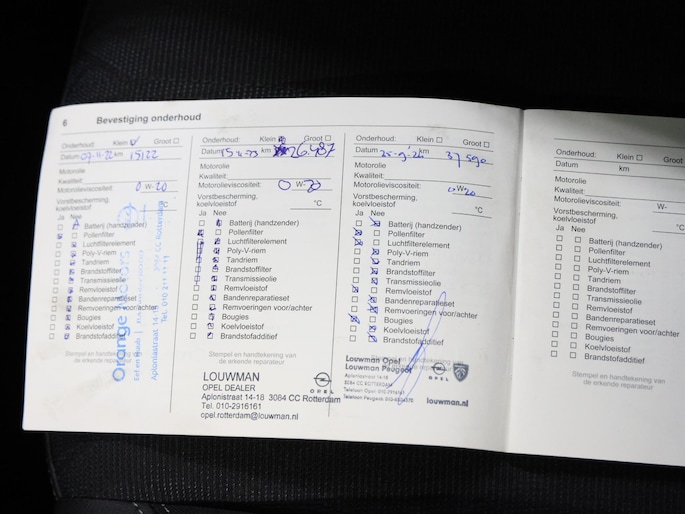 6 Bevestiging onderhoud
Onderhoud: Klein Groot
Datum 07-11-22 km 15122
Motorolie
Kwaliteit:
Motorolieviscositeit: 0 W-20
Vorstbescherming,
koelvloeistof
Ja Nee
Batterij (handzender)
Pollenfilter
Luchtfilterelement
Poly-V-riem
Tandriem
Brandstoffilter
Transmissieolie
Remvloeistof
Bandenreparatieset
Remvoeringen voor/achter
Bougies
Koelvloeistof
Brandstofadditief
Orange Motors
Aploniastraat 14-18 3084 CC Rotterdam
Tel. 010
Onderhoud: Klein Groot
Datum 15-11-23 km 26.487
Motorolie
Kwaliteit:
Motorolieviscositeit: 0 W-20
Vorstbescherming,
koelvloeistof °C
Ja Nee
Batterij (handzender)
Pollenfilter
Luchtfilterelement
Poly-V-riem
Tandriem
Brandstoffilter
Transmissieolie
Remvloeistof
Bandenreparatieset
Remvoeringen voor/achter
Bougies
Koelvloeistof
Brandstofadditief
Stempel en handtekening van
de erkende reparateur
LOUWMAN
OPEL DEALER
OPEL
Aplonistraat 14-18 3084 CC Rotterdam
Tel. 010-2916161
opel.rotterdam@louwman.nl
Onderhoud: Klein Groot
Datum km 37590
Motorolie
Kwaliteit:
Motorolieviscositeit: 0W20
Vorstbescherming,
koelvloeistof °C
Ja Nee
Batterij (handzender)
Pollenfilter
Luchtfilterelement
Poly-V-riem
Tandriem
Brandstoffilter
Transmissieolie
Remvloeistof
Bandenreparatieset
Remvoeringen voor/achter
Bougies
Koelvloeistof
Brandstofadditief
Stempel en handtekening van
de erkende reparateur
Louwman Opel
Louwman Peugeot
Aploniastraat 14-18
3084 CC ROTTERDAM
OPEL
louwman.nl
Onderhoud: Klein Groot
Datum km
Motorolie
Kwaliteit:
Motorolieviscositeit: W-
Vorstbescherming,
koelvloeistof °C
Ja Nee
Batterij (handzender)
Pollenfilter
Luchtfilterelement
Poly-V-riem
Tandriem
Brandstoffilter
Transmissieolie
Remvloeistof
Bandenreparatieset
Remvoeringen voor/achter
Bougies
Koelvloeistof
Brandstofadditief
Stempel en handtekening van
de erkende reparateur